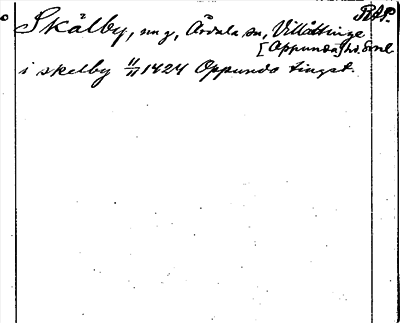 RAP.
Skälby, nu g, Årdala sn, Villåttinge
[Oppunda] hd. Sörml
i skelby 11/11 1424 Oppunda tingst.